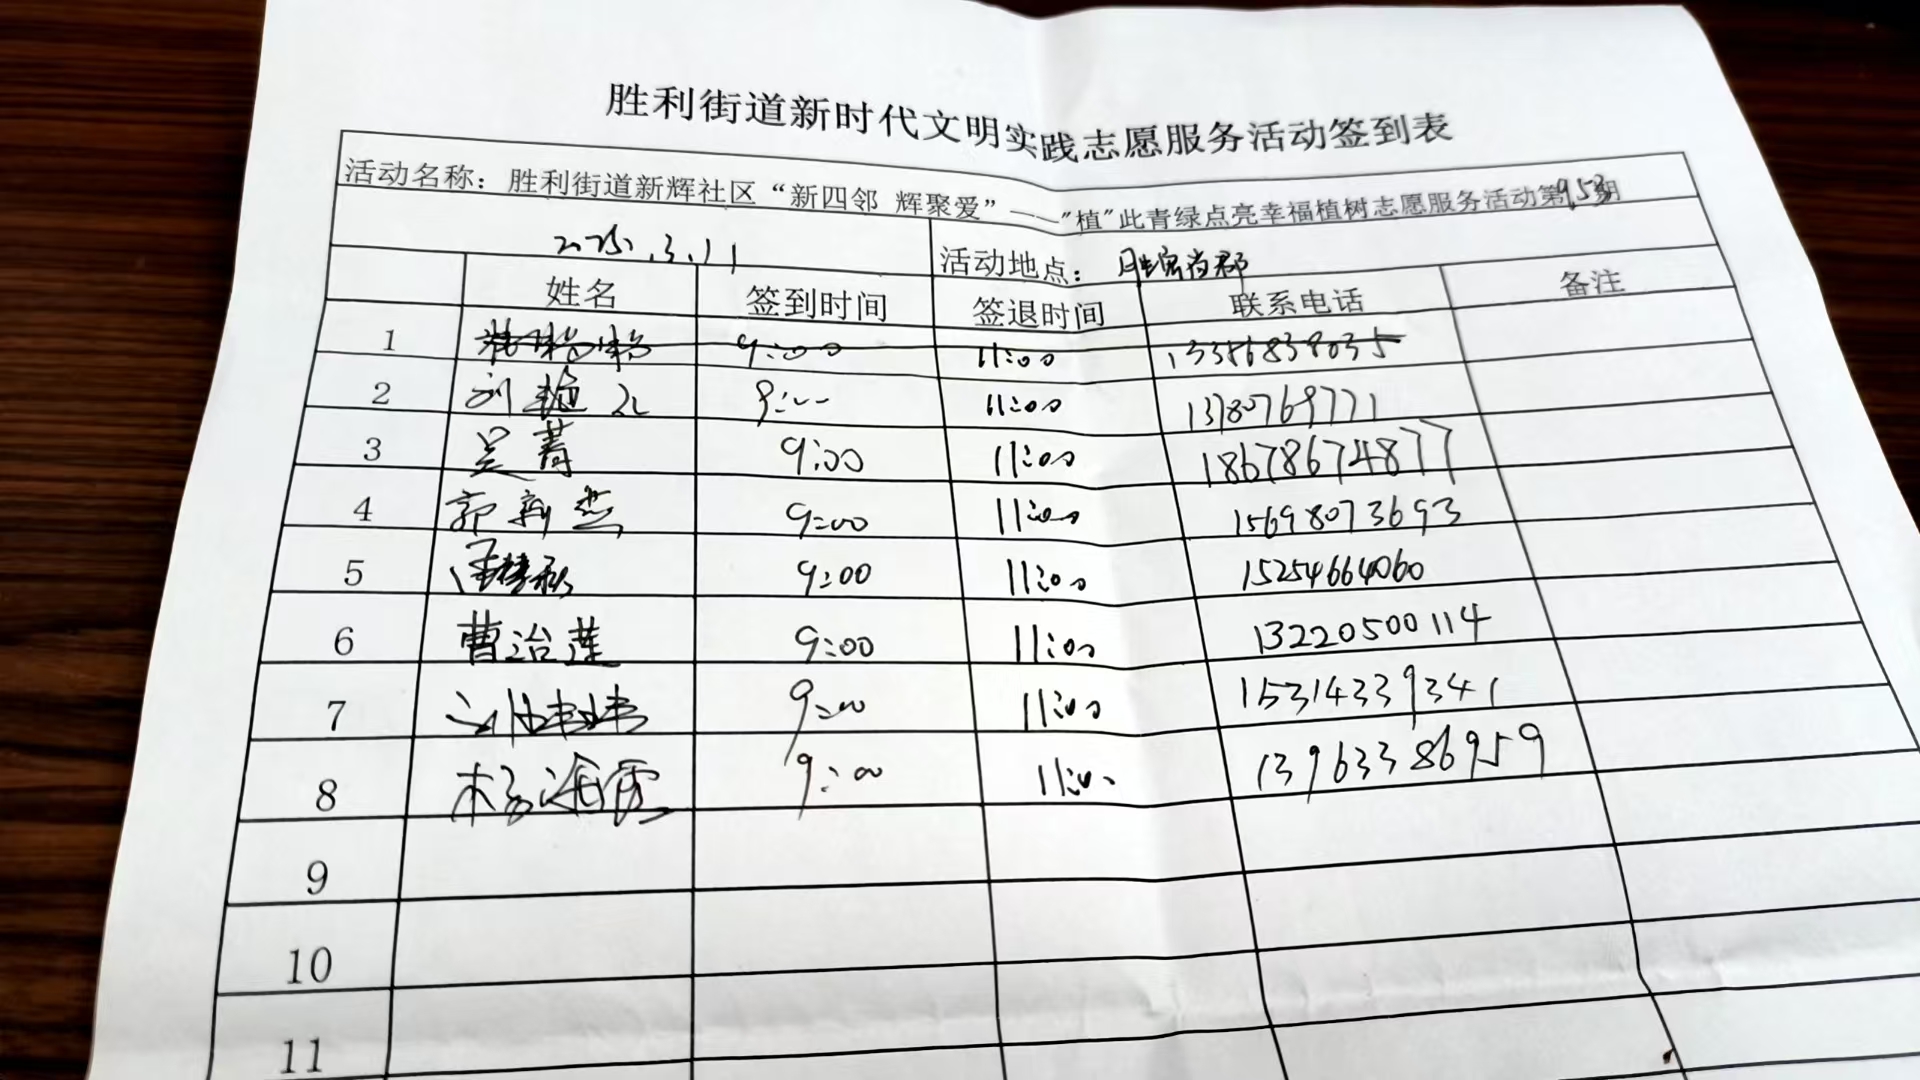 胜利街道新时代文明实践志愿服务活动签到表
活动名称：胜利街道新辉社区“新四邻 辉聚爱”——"植"此青绿点亮幸福植树志愿服务活动第953期
2025.3.11 活动地点：胜宏尚郡
姓名 签到时间 签退时间 联系电话 备注
1 9:00 11:00 13356839035
2 刘艳元 9:00 11:00 13780769771
3 吴菁 9:00 11:00 18678674877
4 郭新燕 9:00 11:00 15698073693
5 9:00 11:00 15254664060
6 曹治莲 9:00 11:00 13220500114
7 9:00 11:00 15314339341
8 杨海霞 9:00 11:00 13963386959
9
10
11